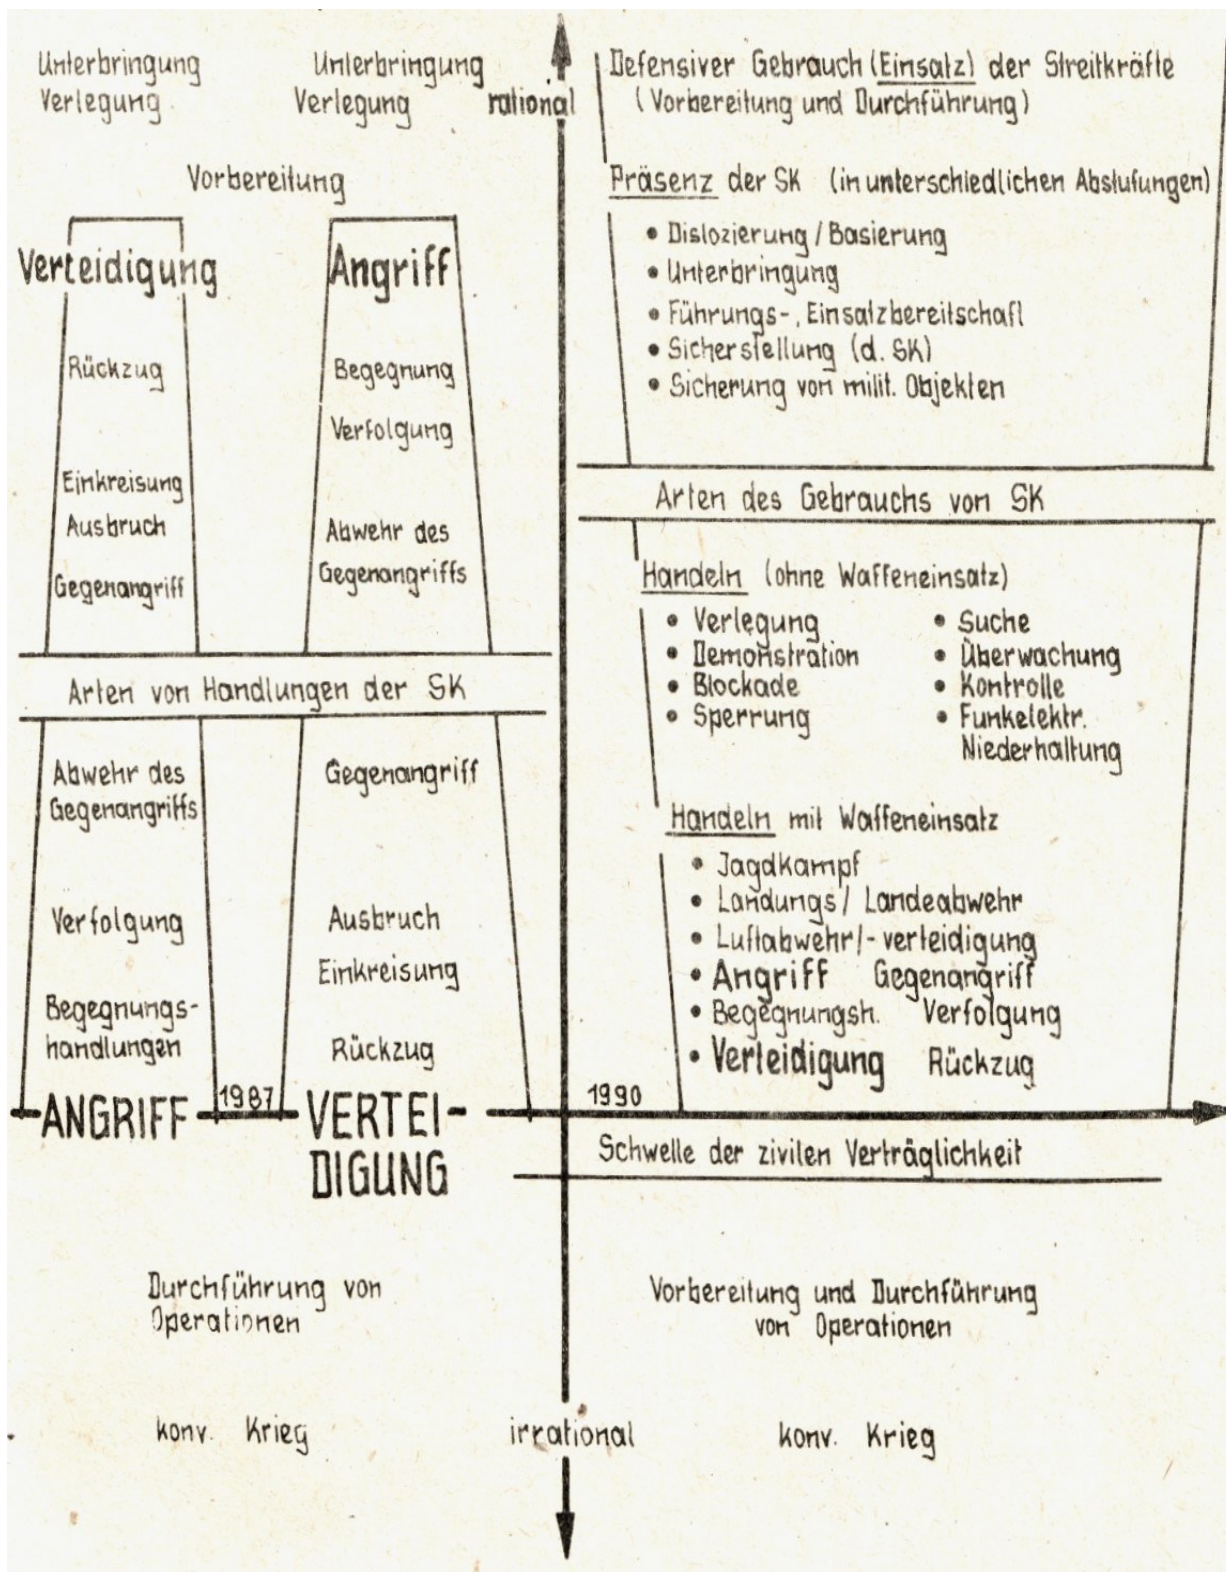 Unterbringung
Verlegung
Unterbringung
Verlegung
rational
Vorbereitung
Verteidigung
Rückzug
Einkreisung
Ausbruch
Gegenangriff
Angriff
Begegnung
Verfolgung
Abwehr des
Gegenangriffs
Arten von Handlungen der SK
Abwehr des
Gegenangriffs
Verfolgung
Begegnungs-
handlungen
ANGRIFF
1987
Gegenangriff
Ausbruch
Einkreisung
Rückzug
VERTEI-
DIGUNG
Durchführung von
Operationen
konv. Krieg
irrational
Defensiver Gebrauch (Einsatz) der Streitkräfte
(Vorbereitung und Durchführung)
Präsenz der SK (in unterschiedlichen Abstufungen)
• Dislozierung / Basierung
• Unterbringung
• Führungs-, Einsatzbereitschaft
• Sicherstellung (d. SK)
• Sicherung von milit. Objekten
Arten des Gebrauchs von SK
Handeln (ohne Waffeneinsatz)
• Verlegung
• Demonstration
• Blockade
• Sperrung
• Suche
• Überwachung
• Kontrolle
• Funkelektr.
Niederhaltung
Handeln mit Waffeneinsatz
• Jagdkampf
• Landungs/ Landeabwehr
• Luftabwehr/-verteidigung
• Angriff Gegenangriff
• Begegnungsh. Verfolgung
• Verteidigung Rückzug
1990
Schwelle der zivilen Verträglichkeit
Vorbereitung und Durchführung
von Operationen
konv. Krieg